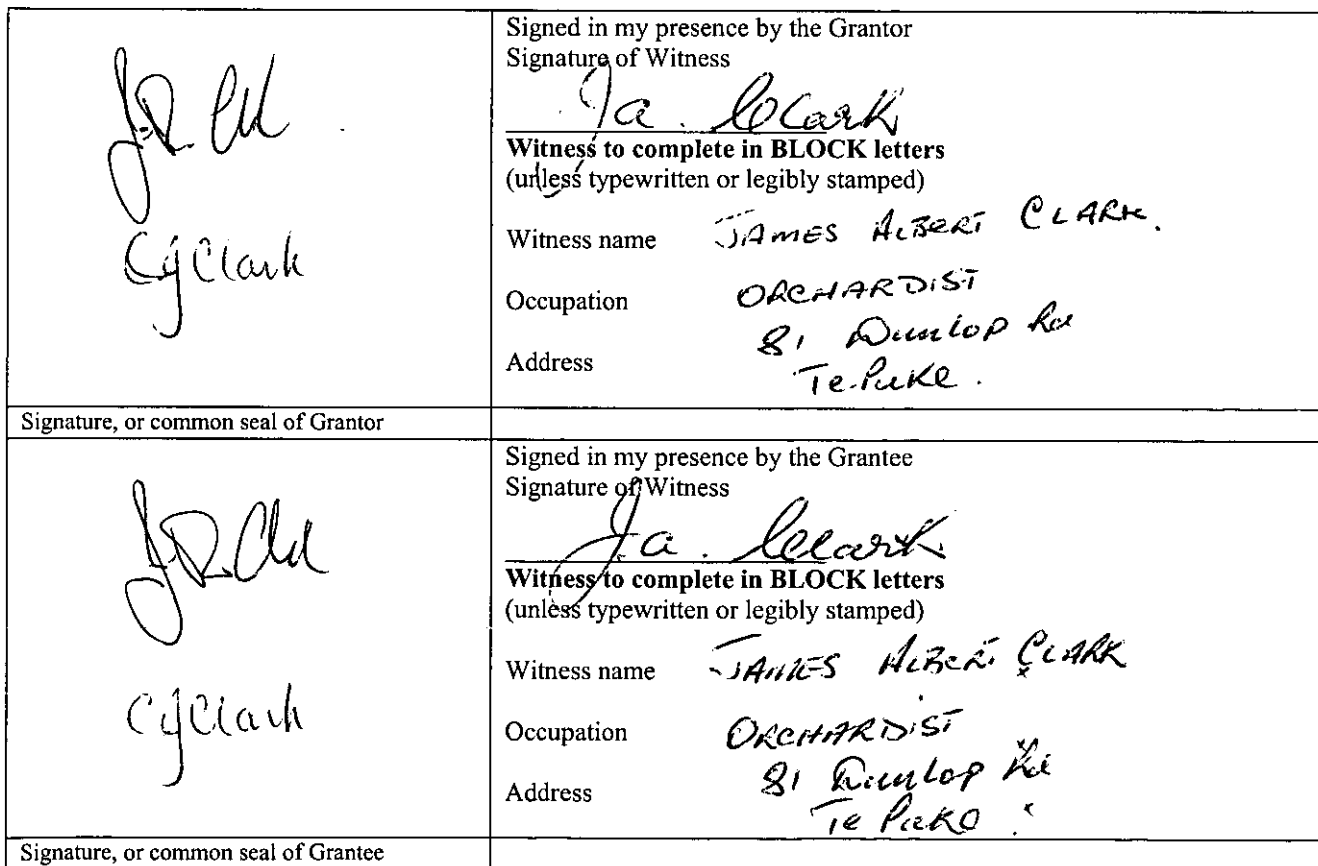 Signed in my presence by the Grantor
Signature of Witness
J.a. Clark
Witness to complete in BLOCK letters
(unless typewritten or legibly stamped)
Witness name JAMES ALBERT CLARK.
Occupation ORCHARDIST
Address 81 Dunlop Rd
Te Puke.
CJClark
Signature, or common seal of Grantor
Signed in my presence by the Grantee
Signature of Witness
J.a. Clark
Witness to complete in BLOCK letters
(unless typewritten or legibly stamped)
Witness name JAMES ALBERT CLARK
Occupation ORCHARDIST
Address 81 Dunlop Rd
Te Puke
CJClark
Signature, or common seal of Grantee